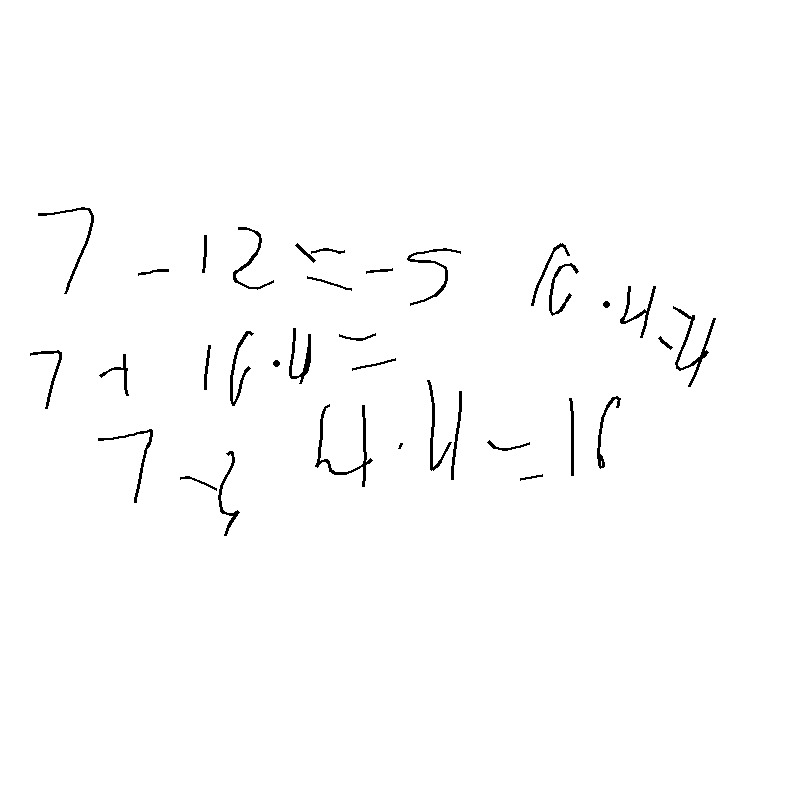 7 - 12 = -5
16 · 4 = 4
7 + 16 · 4 =
4 · 4 = 16
7 -